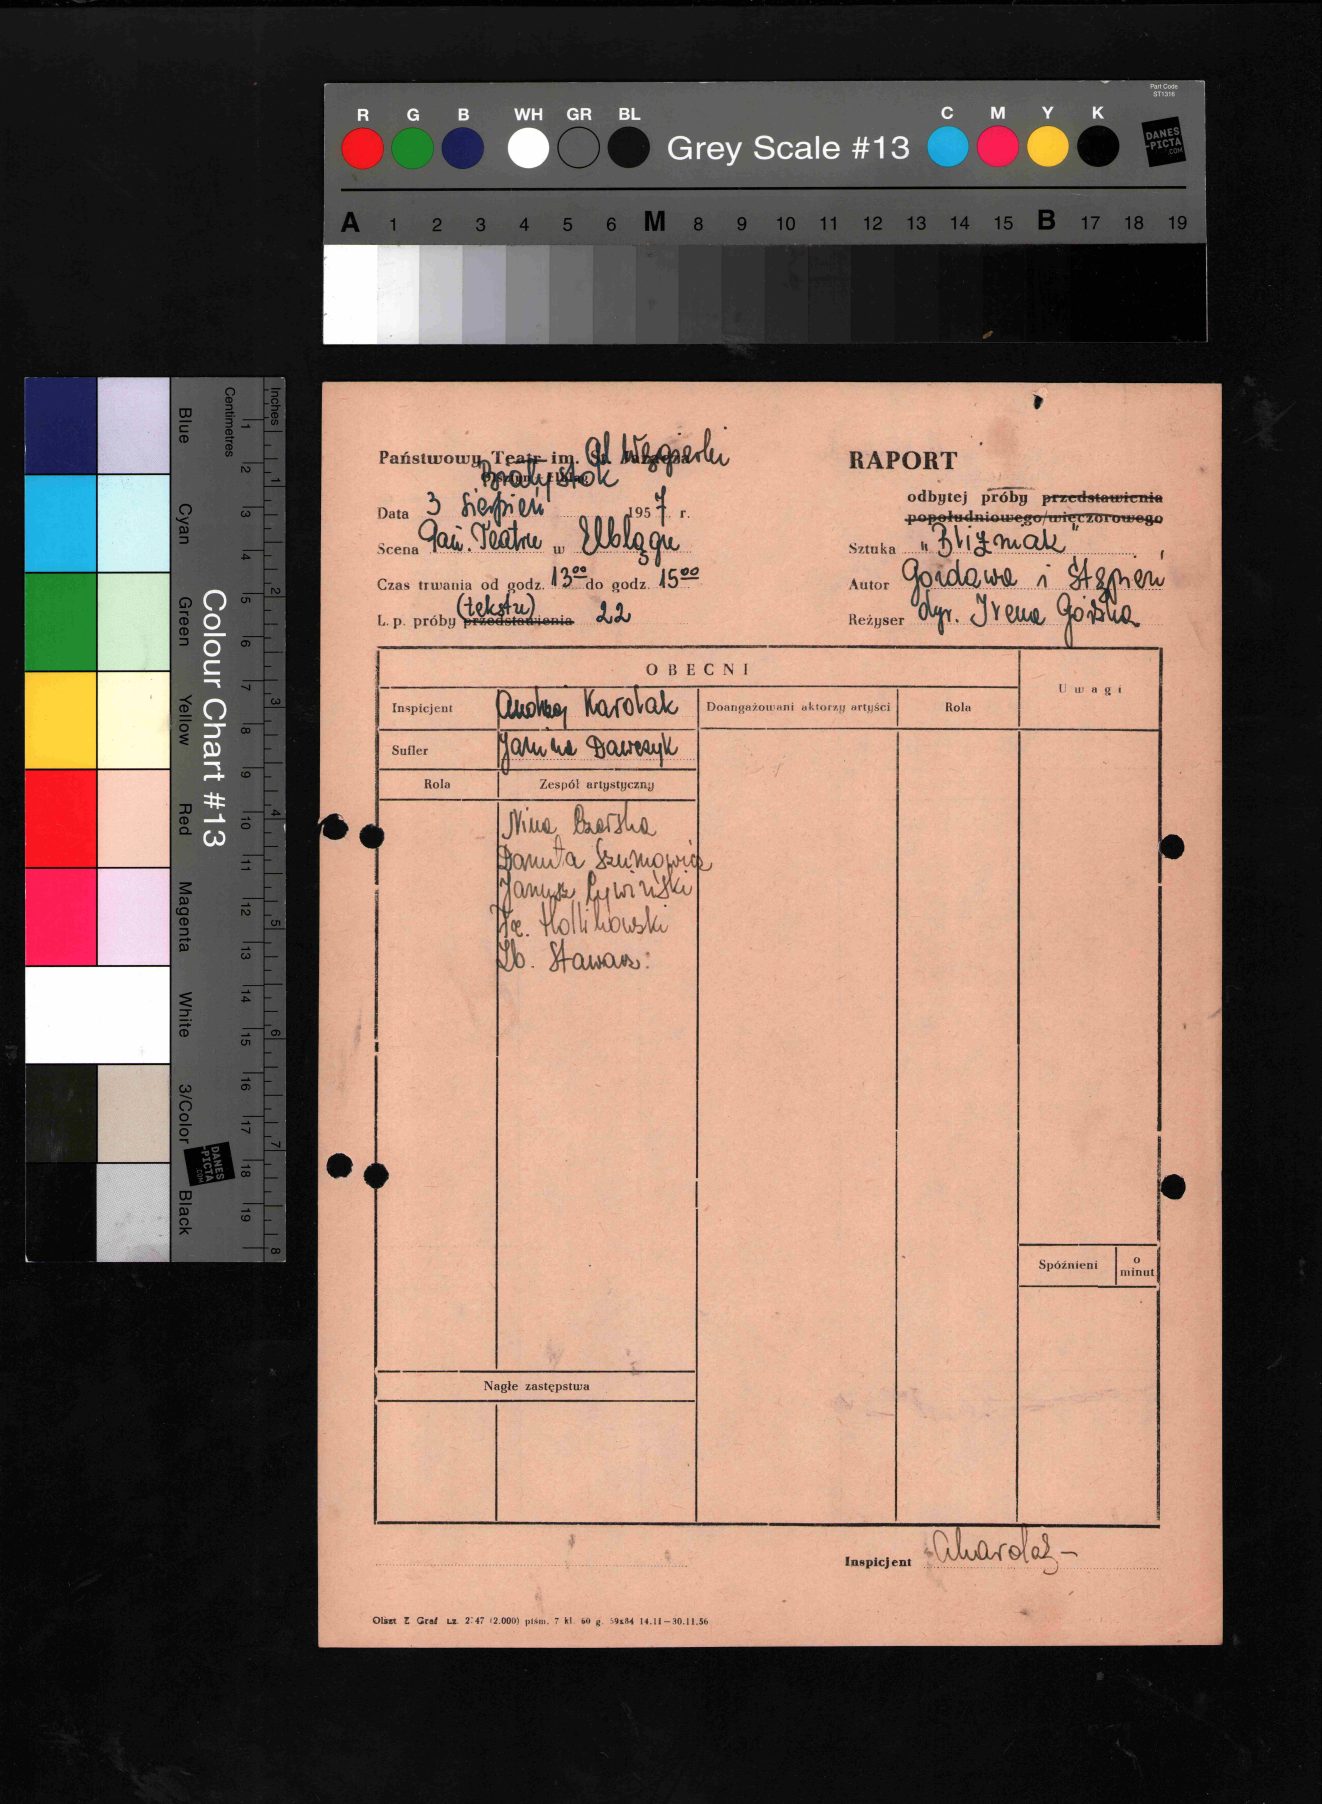 Part Code
ST1316
R G B WH GR BL Grey Scale #13 C M Y K
DANES
-PICTA
.COM
A 1 2 3 4 5 6 M 8 9 10 11 12 13 14 15 B 17 18 19
Inches
Centimetres
Colour Chart #13
Blue
Cyan
Green
Yellow
Red
Magenta
White
3/Color
Black
1 2 3 4 5 6 7 8 9 10 11 12 13 14 15 16 17 18 19
1 2 3 4 5 6 7 8
DANES
-PICTA
.COM
Państwowy Teatr im. St. Jaracza Al Węgierki
Białystok
Data 3 sierpień 1957 r.
Scena Pań. Teatru w Elblągu
Czas trwania od godz. 1300 do godz. 1500
(tekstu)
L. p. próby przedstawienia 22
RAPORT
odbytej próby przedstawienia
popołudniowego/wieczorowego
Sztuka "Bliźniak"
Autor Gozdawa i Stępień
Reżyser dyr. Irena Górska
OBECNI
Uwagi
Inspicjent Andrzej Karolak
Doangażowani aktorzy artyści
Rola
Sufler Janina Dawczyk
Rola
Zespół artystyczny
Nina Czarska
Danuta Szumowicz
Janusz Cywiński
Stawarz
Spóźnieni
o minut
Nagłe zastępstwa
Inspicjent AKarolak
Olszt Z. Graf Lz. 2147 (2.000) piśm. 7 kl. 60 g. 59x84 14.11—30.11.56